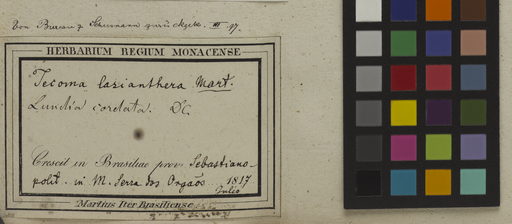 Von Bureau & Schumann zurück 97.
HERBARIUM REGIUM MONACENSE
Tecoma lasianthera Mart.
Lundia cordata. DC.
Crescit in Brasiliae prov. Sebastiano-
polit. in M. Serra dos Orgaõs 1817
Julio
Martius Iter Brasiliense